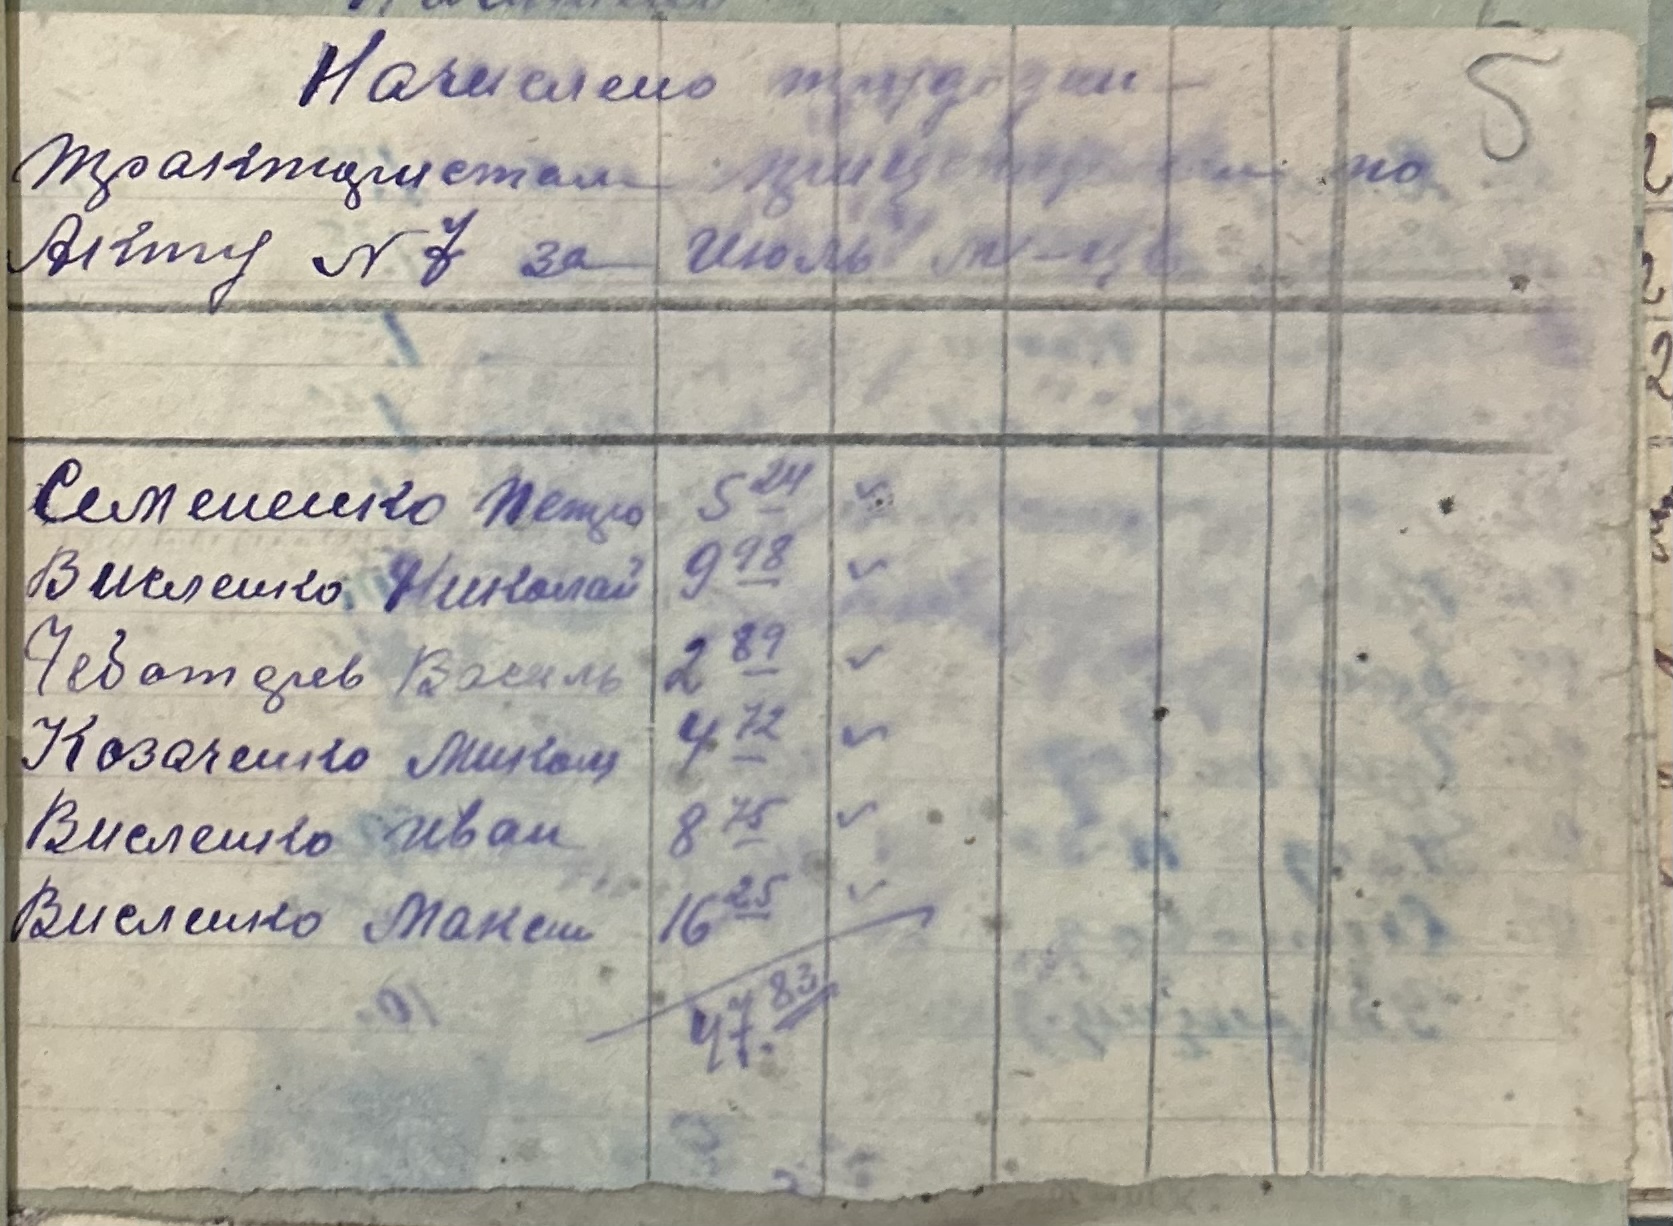 5
Начислено трудодни
трактористам прицепщикам по
Акту N 7 за июль м-ць
Семененко Петро 5 24 ✓
Висленко Николай 9 98 ✓
Чеботарев Василь 2 89 ✓
Козаченко Микола 4 72 ✓
Висленко Иван 8 75 ✓
Висленко Максим 16 25 ✓
47.83